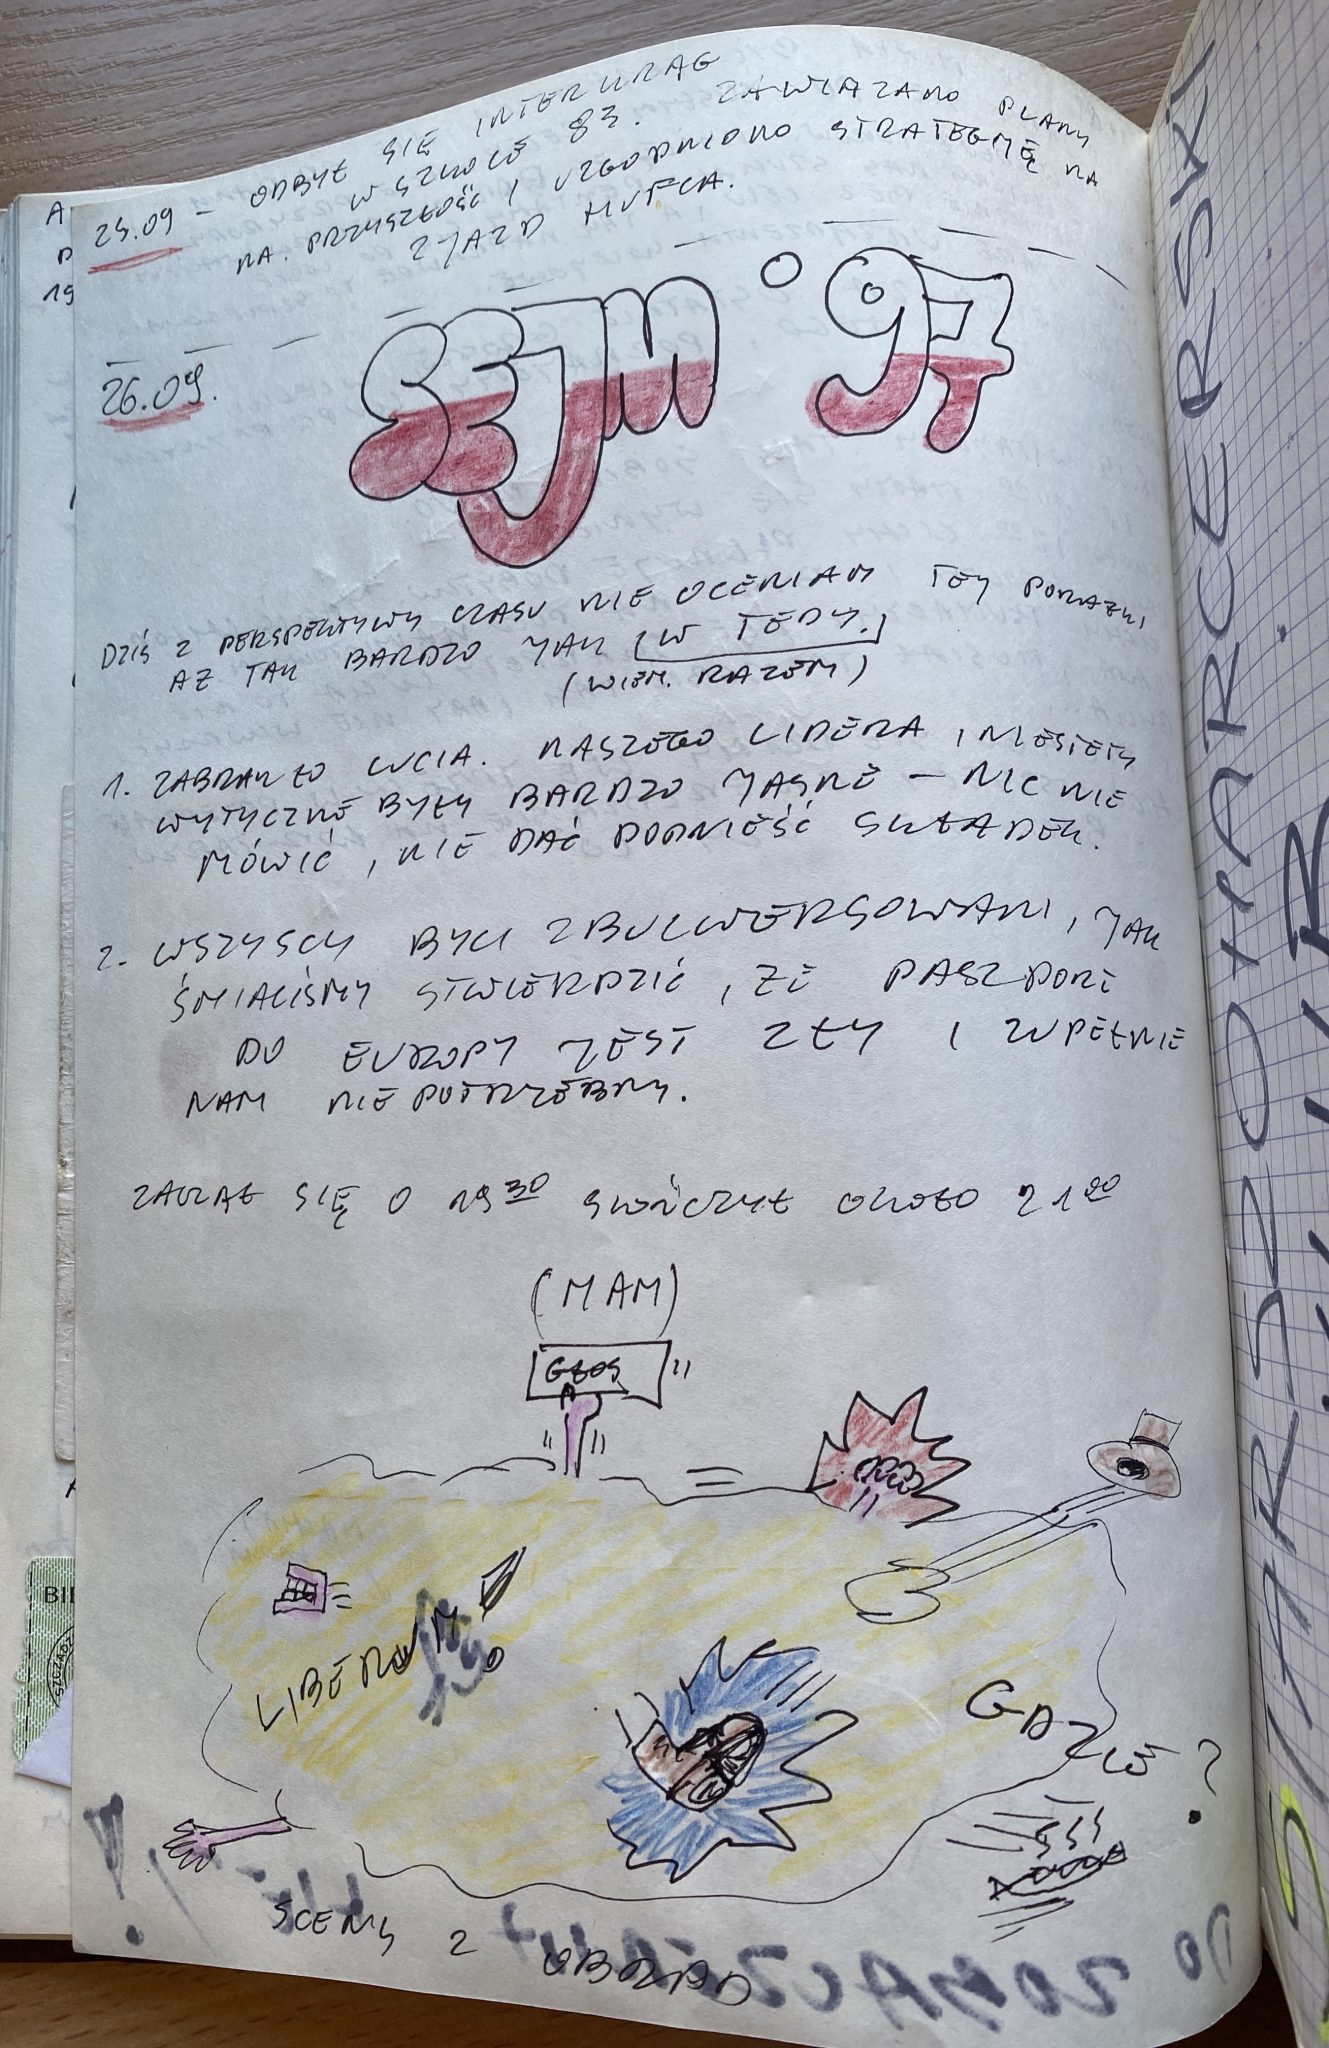 25.09 – ODBYŁ SIĘ INTERKRĄG
W SZKOLE 83. ZAWIĄZANO PLANY
NA. PRZYSZŁOŚĆ I UZGODNIONO STRATEGIĘ NA
ZJAZD HUFCA.
26.09.
SEJM '97
DZIŚ Z PERSPEKTYWY CZASU NIE OCENIAM TEJ PORAŻKI
AŻ TAK BARDZO JAK (W TEDY.)
(WIEM. RAZEM)
1. ZABRAKŁO LUCIA. NASZEGO LIDERA, NIESTETY
WYTYCZNE BYŁY BARDZO JASNE – NIC NIE
MÓWIĆ, NIE DAĆ PODNIEŚĆ SKŁADEK.
2. WSZYSCY BYLI ZBULWERSOWANI, JAK
ŚMIELIŚMY STWIERDZIĆ, ŻE PASZPORT
DO EUROPY JEST ZŁY I ZUPEŁNIE
NAM NIEPOTRZEBNY.
ZACZĄŁ SIĘ O 19 30 SKOŃCZYŁ OKOŁO 21 00
(MAM)
GŁOS
LIBERUM
GDZIE?
SCENY Z OBRAD
STARSZOHARCERSKI
BIE